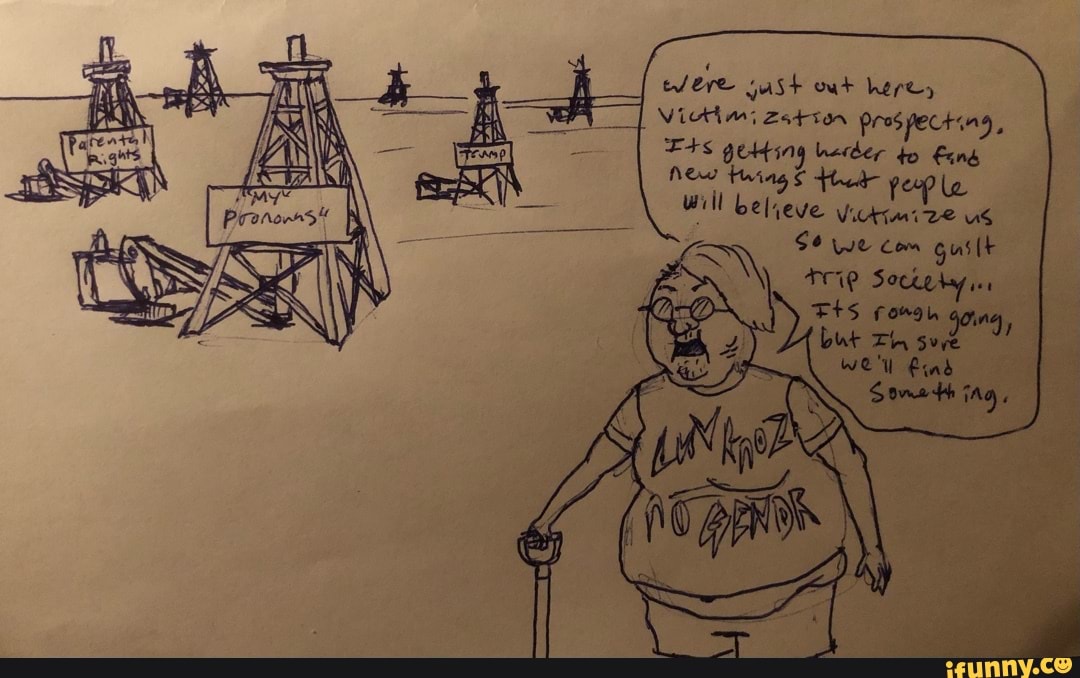 Parental
Rights
"My"
Pronouns"
Trump
We're just out here,
Victimization prospecting.
Its getting harder to find
new things that people
will believe victimize us
so we can guilt
trip society...
Its rough going,
but I'm sure
we'll find
Something.
LUV KNOZ
NO GENDR
ifunny.co